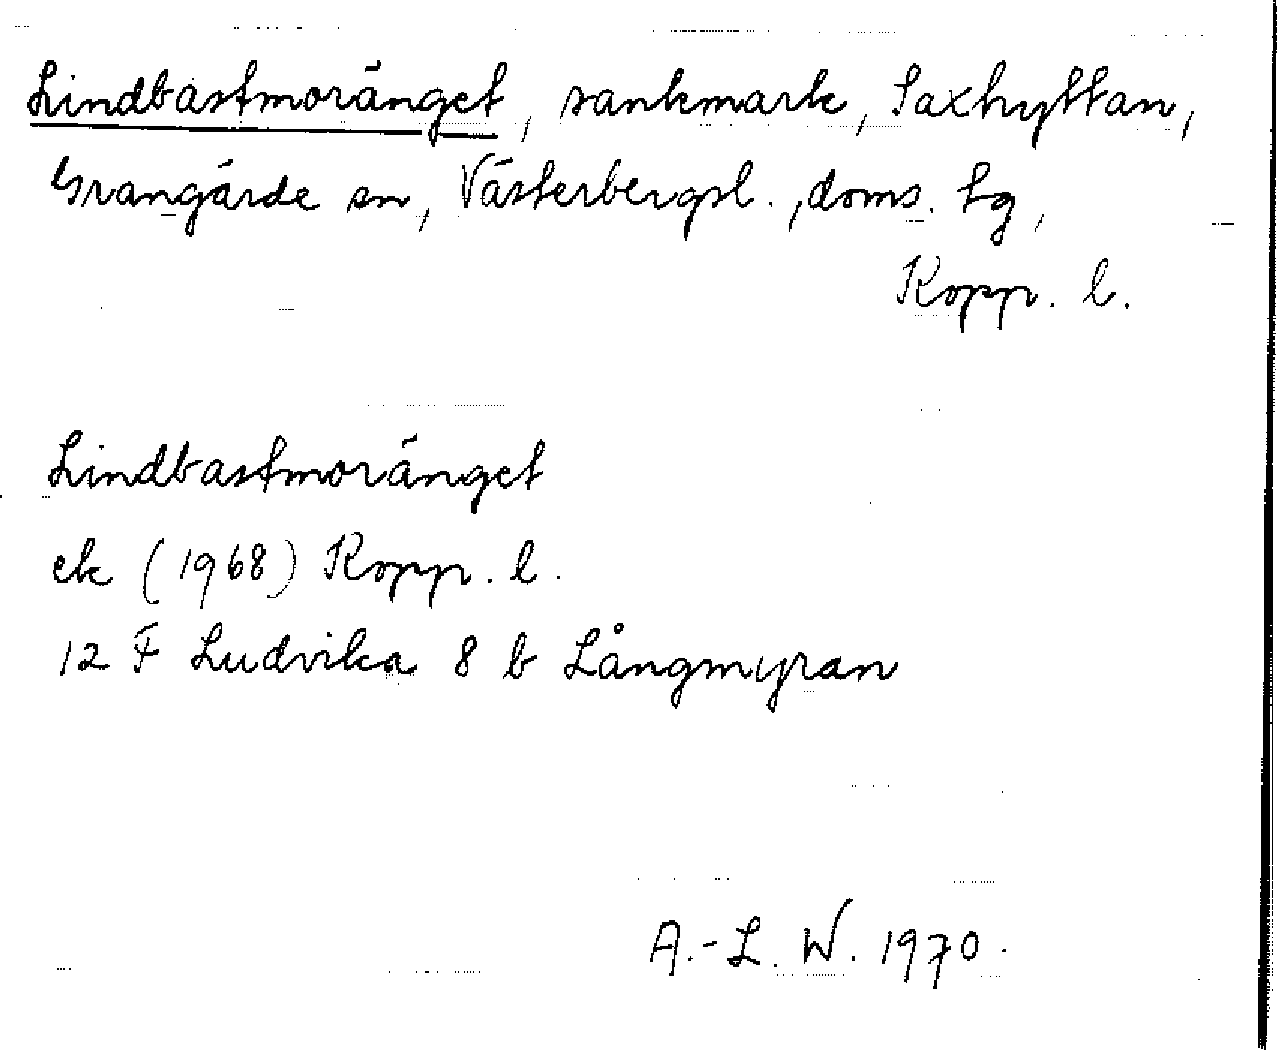 Lindbastmoränget, sankmark, Saxhyttan,
Grangärde sn, Västerbergsl., doms. tg,
Kopp. l.
Lindbastmoränget
ek (1968) Kopp. l.
12 F Ludvika 8 b Långmyran
A.-L. W. 1970.